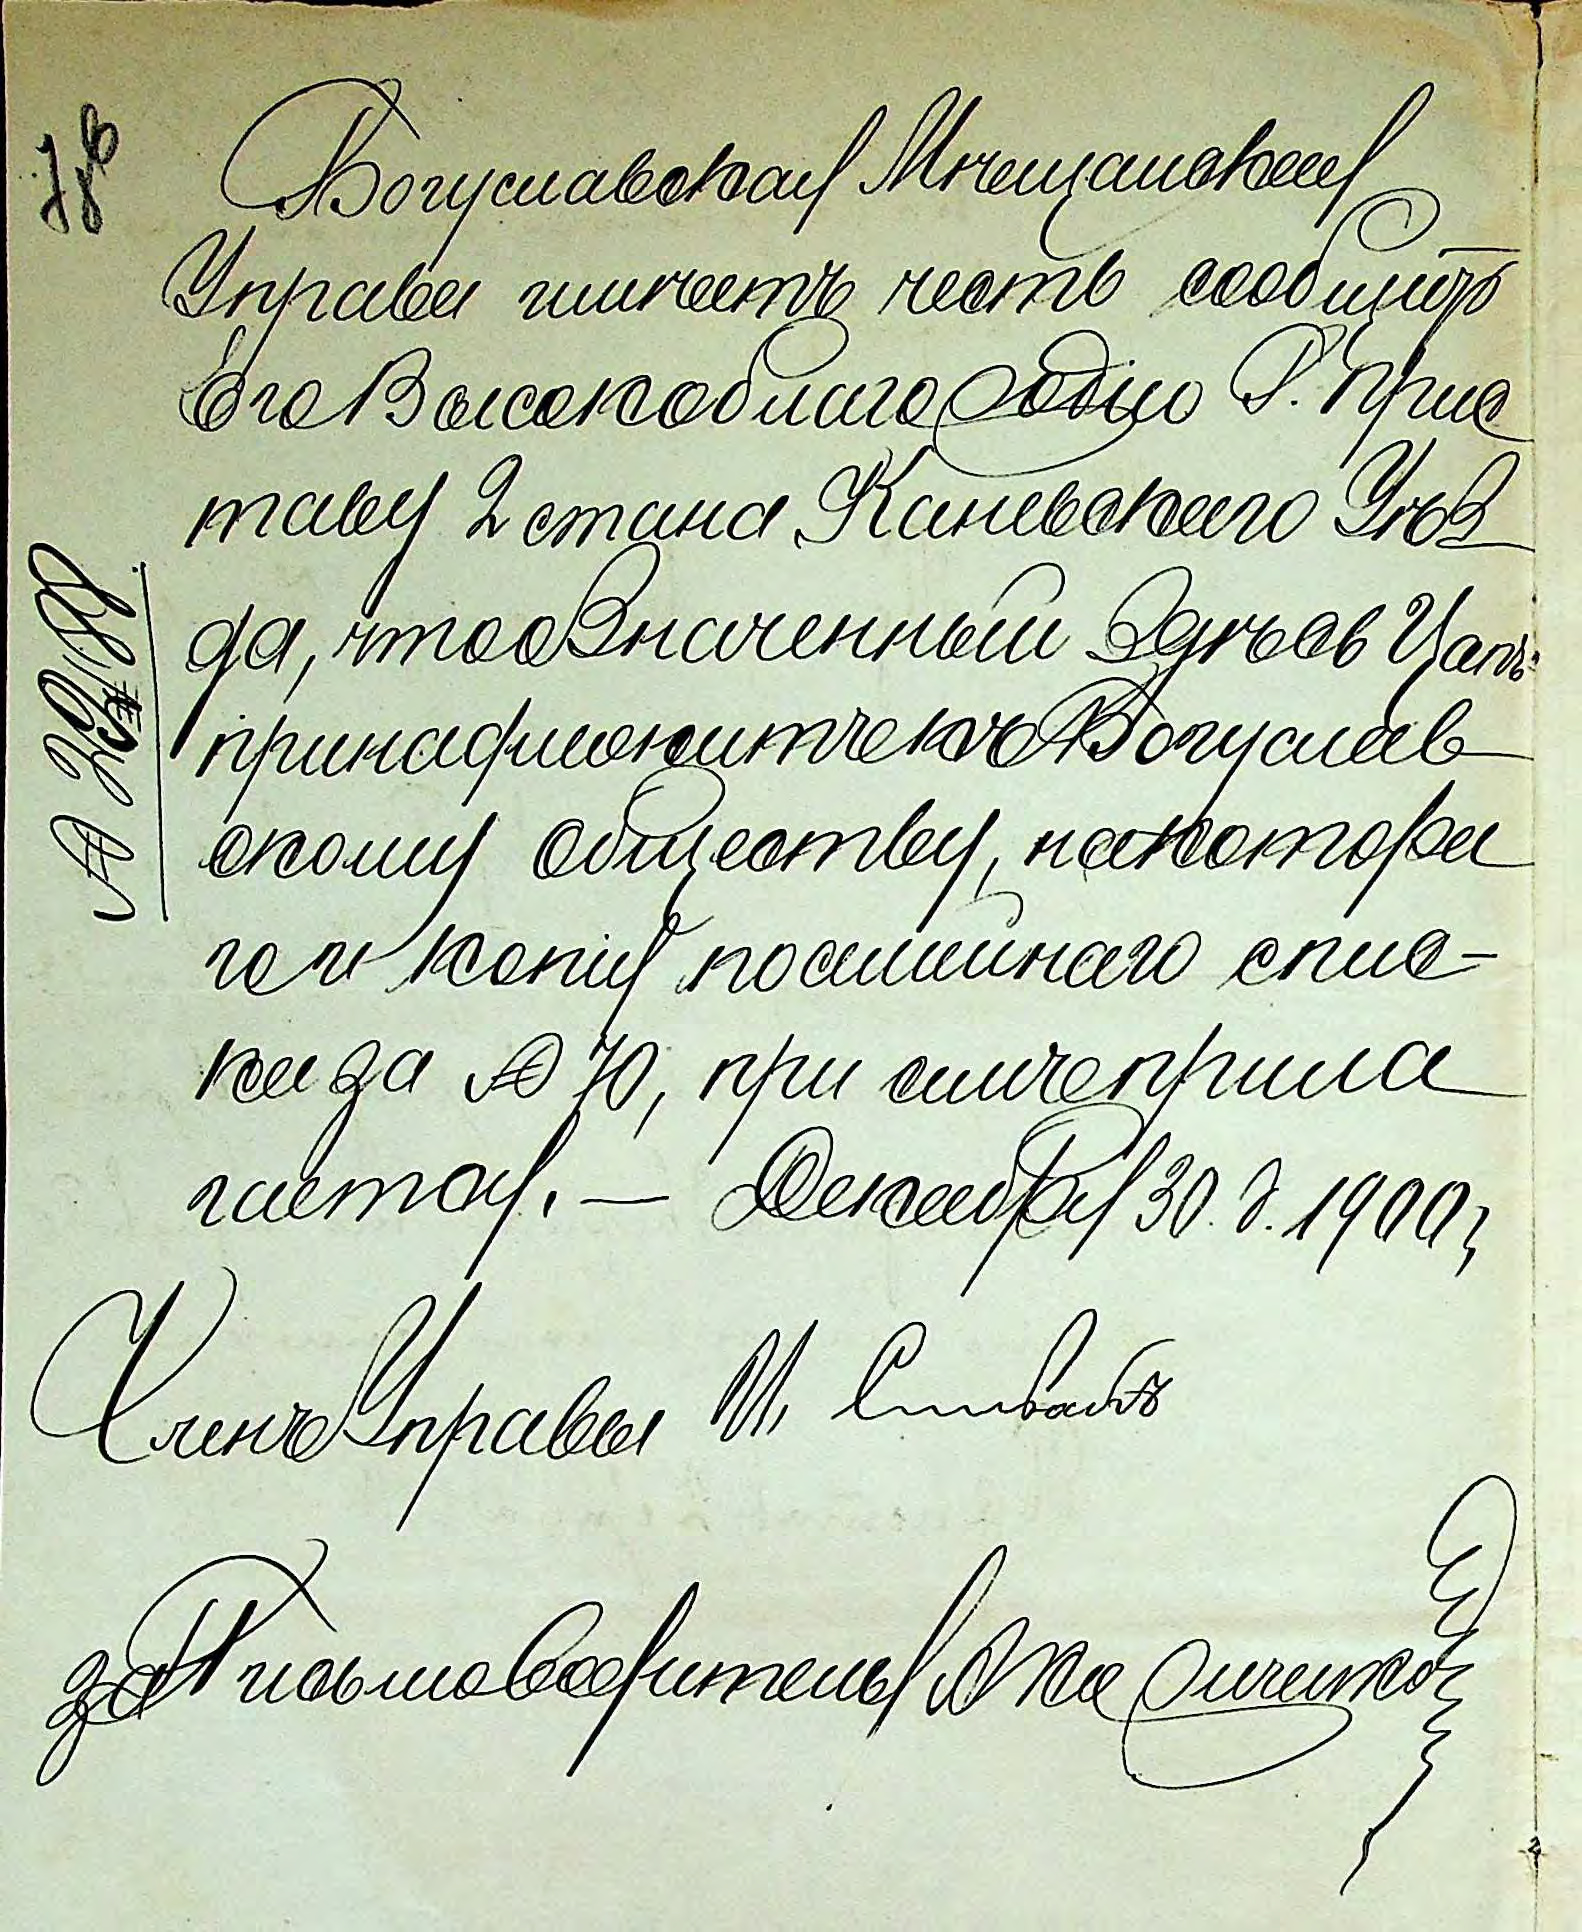 Богуславская Мѣщанская
Управа имѣетъ честь сообщить
Его Высокоблагородію Г. Прис
таву 2 стана Каневскаго Уѣз
да, что означенный здѣсь Цапъ
принадлежитъ къ Богуслав
скому обществу, на котора
го и копія посемейнаго спис-
ка за № 70, при семъ прила
гается. — Декабря 30 д. 1900 г.
Членъ Управы И. Спивакъ
за Письмоводителя